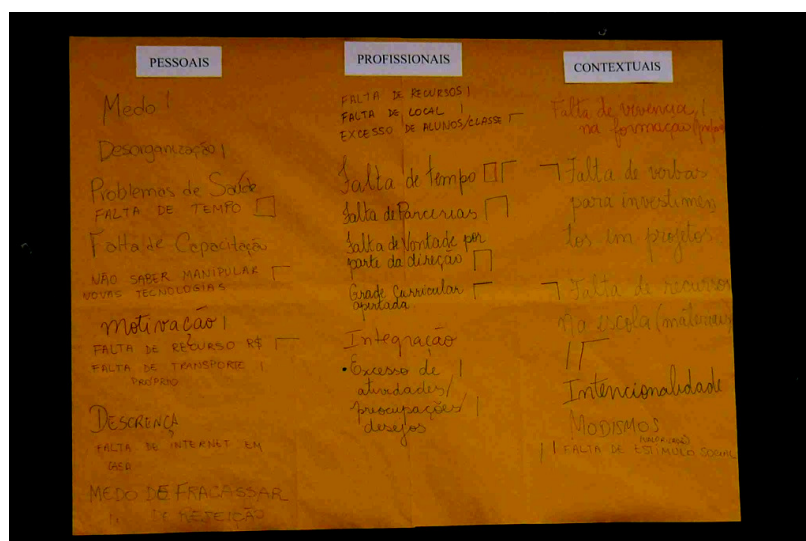 PESSOAIS
Medo
Desorganização
Problemas de Saúde
FALTA DE TEMPO
Falta de Capacitação
NÃO SABER MANIPULAR
NOVAS TECNOLOGIAS
motivação
FALTA DE RECURSO R$
FALTA DE TRANSPORTE
PRÓPRIO
DESCRENÇA
FALTA DE INTERNET EM
CASA
MEDO DE FRACASSAR
DE REJEIÇÃO
PROFISSIONAIS
FALTA DE RECURSOS
FALTA DE LOCAL
EXCESSO DE ALUNOS/CLASSE
Falta de tempo
Falta de Parcerias
Falta de Vontade por
parte da direção
Grade Curricular
apertada
Integração
• Excesso de
atividades/
preocupações/
desejos
CONTEXTUAIS
Falta de vivência
na formação
Falta de verbas
para investimen
tos em projetos
Falta de recursos
na escola (materiais)
Intencionalidade
MODISMOS
FALTA DE ESTÍMULO SOCIAL